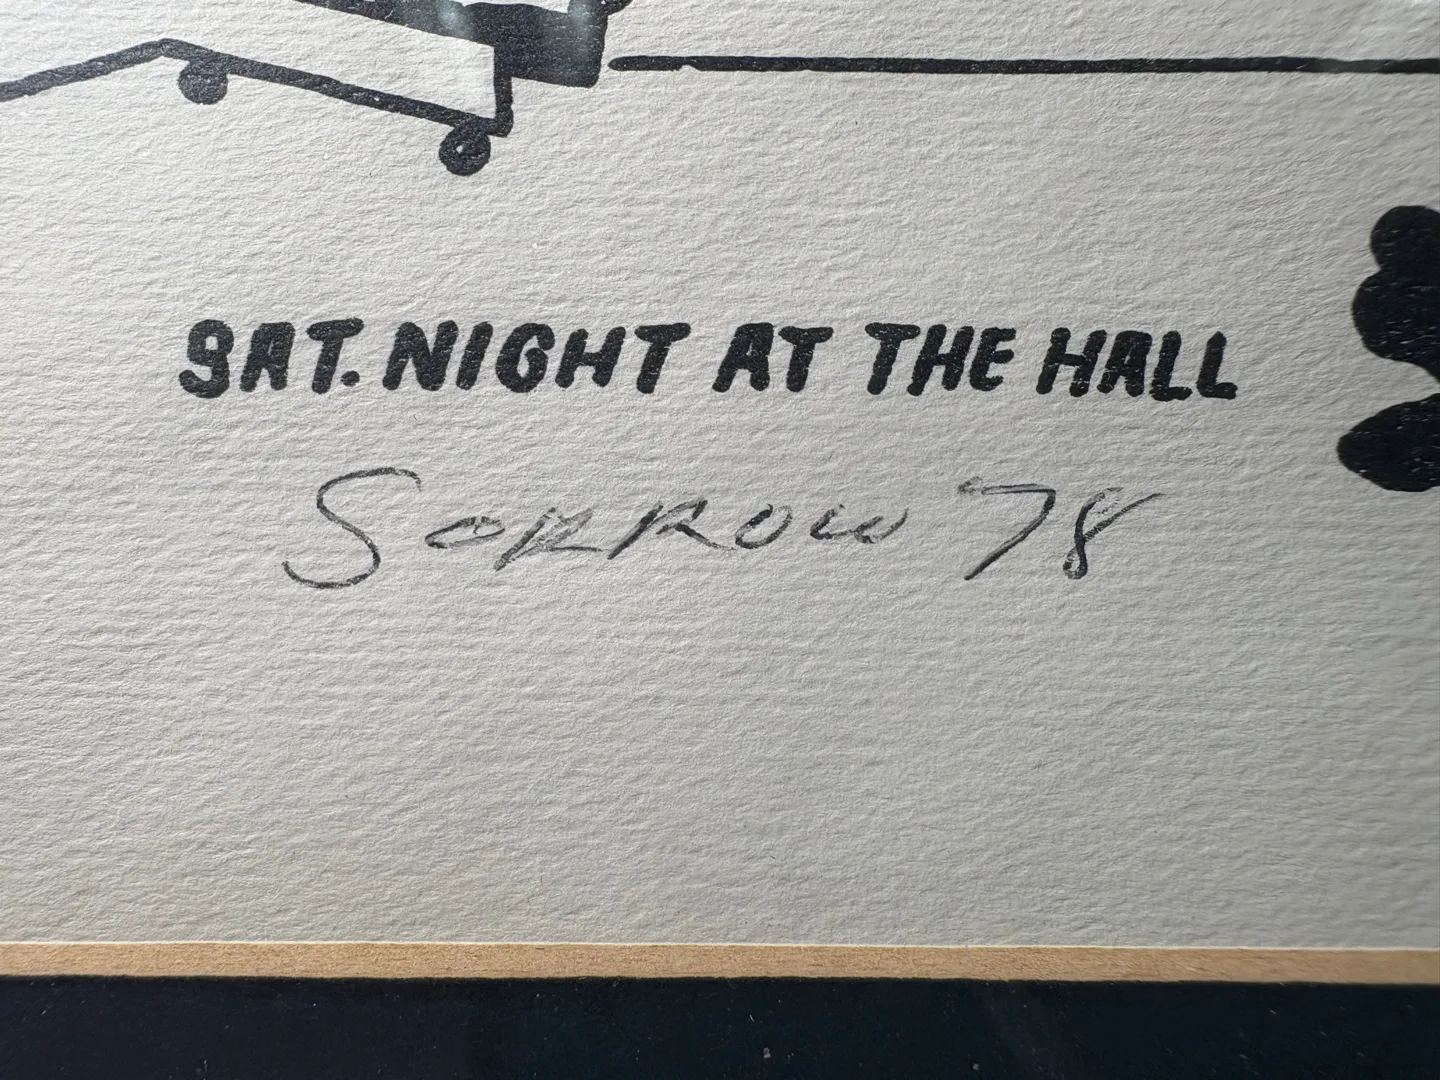 SAT. NIGHT AT THE HALL
SORROW '78